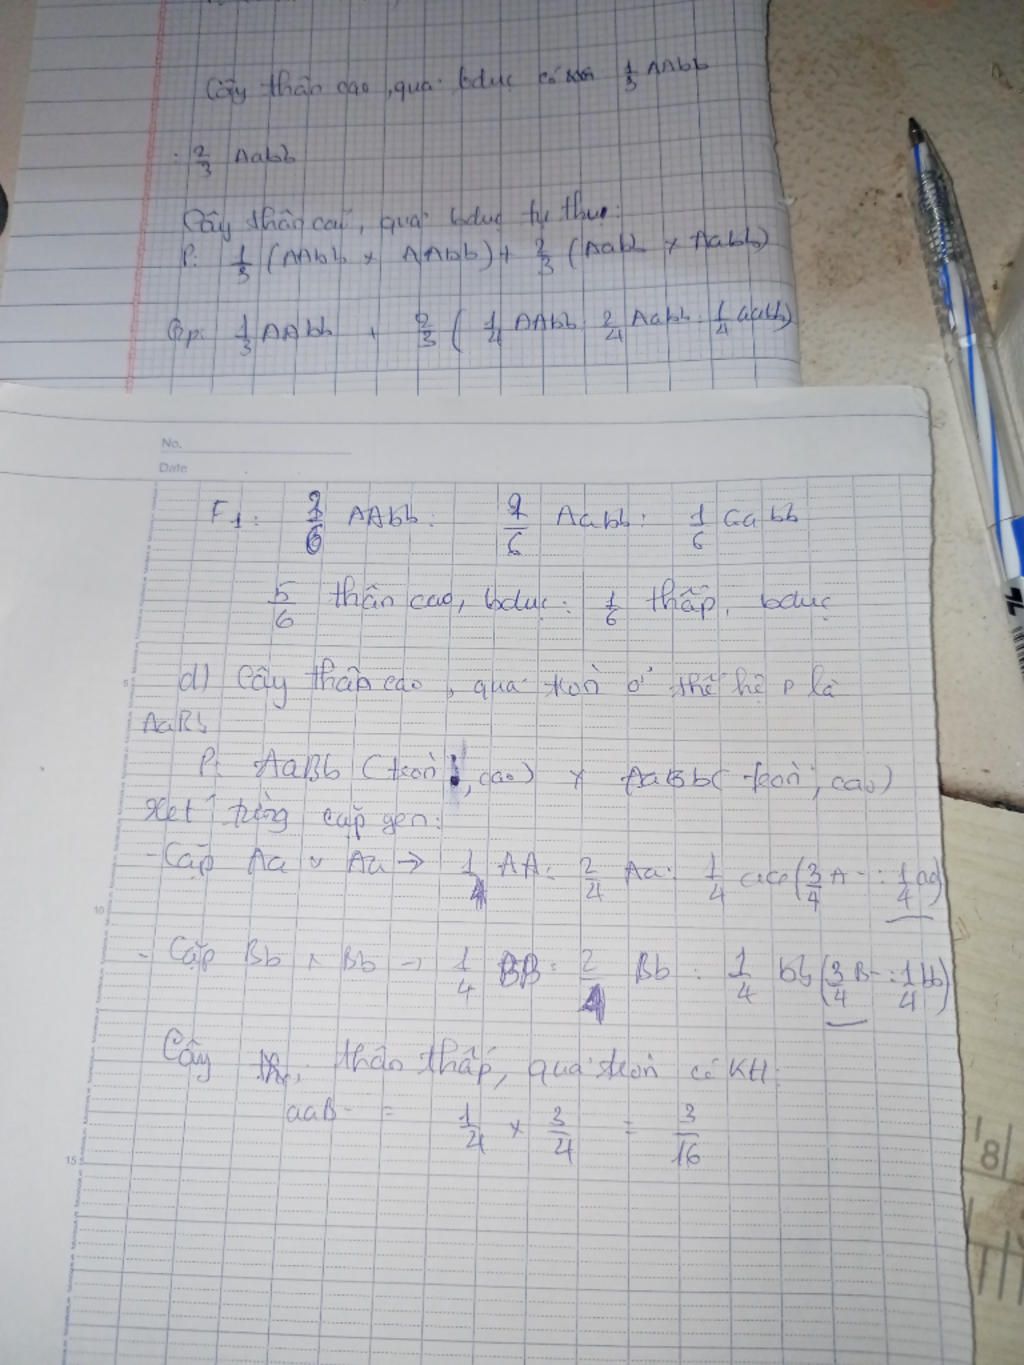 Cây thân cao, quả bdục có 1/3 AAbb
. 2/3 Aabb
Cây thân cao, quả bdục tự thụ:
P: 1/3 (AAbb x AAbb) + 2/3 (Aabb x Aabb)
Gp: 1/3 AAbb + 2/3 ( 1/4 AAbb 2/4 Aabb : 1/4 aabb)
No.
Date
F1: 3/6 AAbb : 2/6 Aabb : 1/6 aabb
5/6 thân cao, bdục : 1/6 thấp, bdục
5
d) Cây thân cao, quả tròn ở thế hệ P là
AaBb
P: AaBb (tròn, cao) x AaBb (tròn, cao)
Xét từng cặp gen:
- Cặp Aa x Aa → 1/4 AA : 2/4 Aa : 1/4 aa (3/4 A- : 1/4 aa)
10
- Cặp Bb x Bb → 1/4 BB : 2/4 Bb : 1/4 bb (3/4 B- : 1/4 bb)
Cây thân thấp, quả tròn có KH:
aaB- = 1/4 x 3/4 = 3/16
15
8